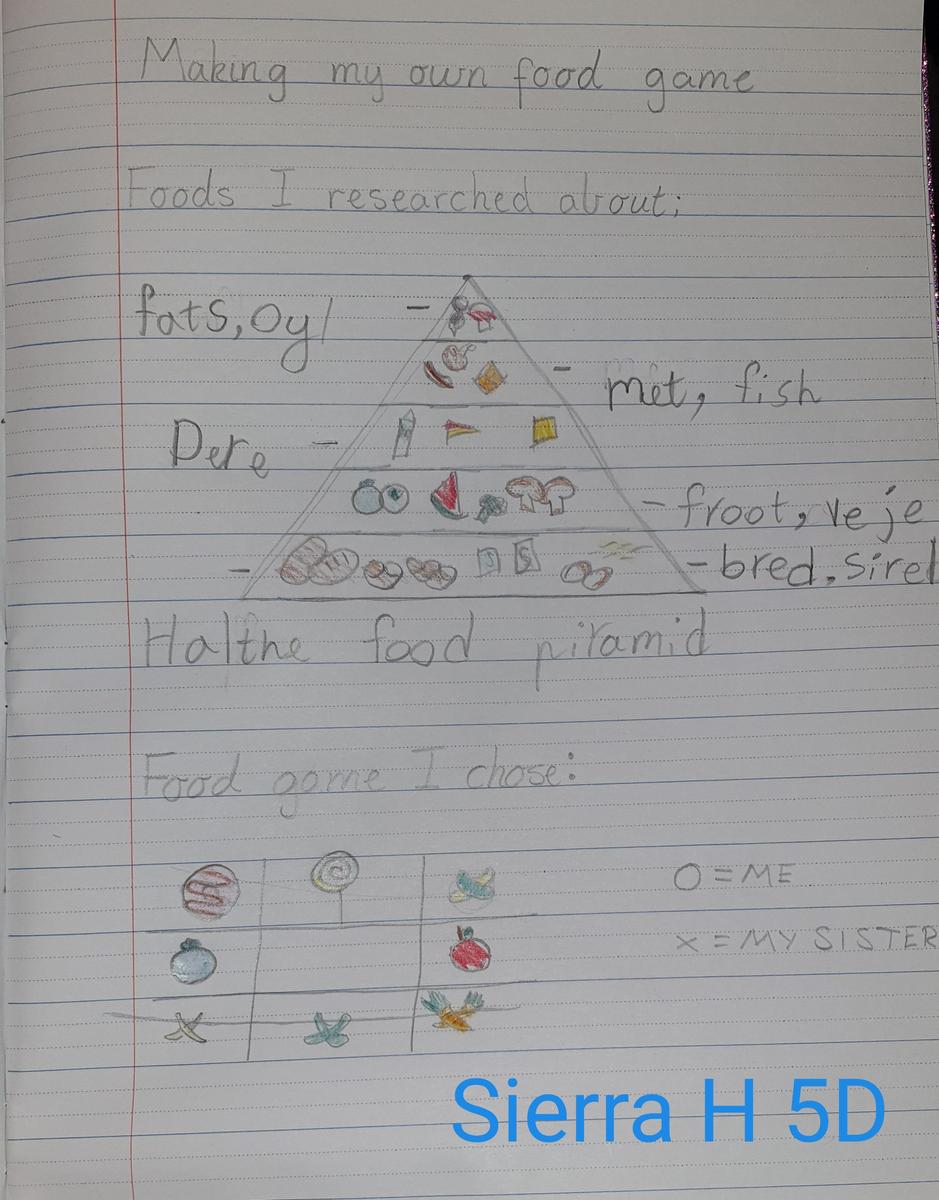 Making my own food game
Foods I researched about:
fats, Oyl -
- met, fish
Dere -
- froot, veje
- - bred, sirel
Halthe food piramid
Food game I chose:
O = ME
X = MY SISTER
Sierra H 5D